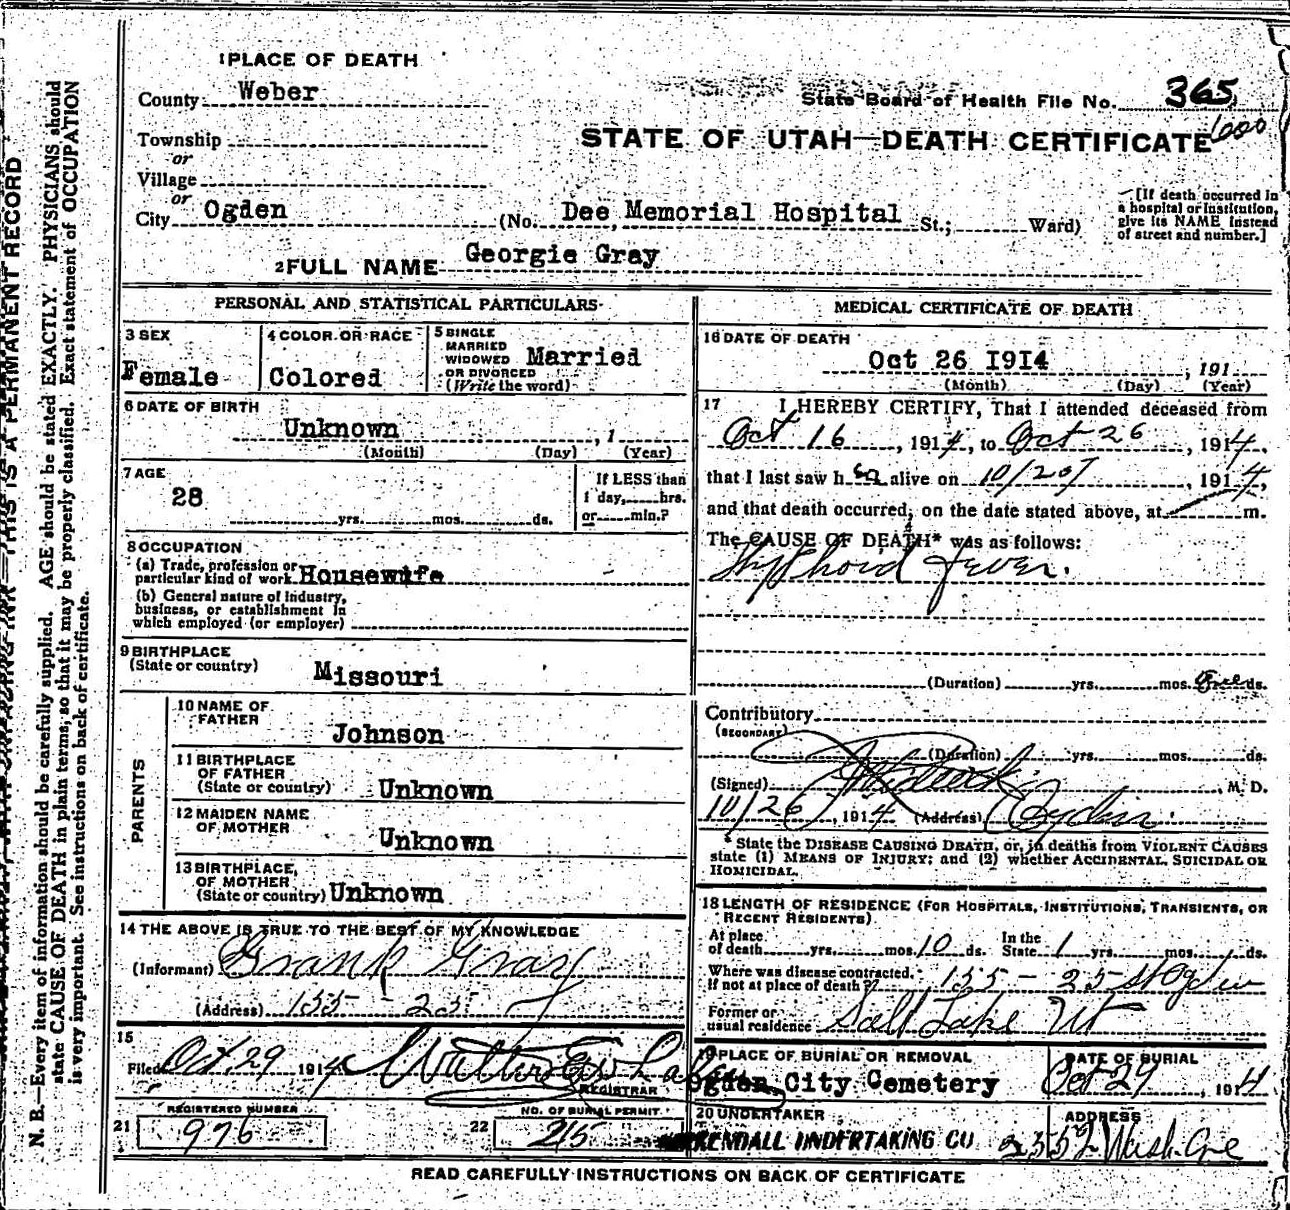 1 PLACE OF DEATH
County Weber
State Board of Health File No. 365
Township
STATE OF UTAH—DEATH CERTIFICATE 600
or
Village
or
City Ogden (No. Dee Memorial Hospital St.; Ward)
[If death occurred in
a hospital or institution,
give its NAME instead
of street and number.]
2 FULL NAME Georgie Gray
PERSONAL AND STATISTICAL PARTICULARS
3 SEX
Female
4 COLOR OR RACE
Colored
5 SINGLE
MARRIED
WIDOWED
OR DIVORCED
(Write the word)
Married
6 DATE OF BIRTH
Unknown , 1
(Month) (Day) (Year)
7 AGE
28
yrs. mos. ds.
If LESS than
1 day, hrs.
or min.?
8 OCCUPATION
(a) Trade, profession or
particular kind of work Housewife
(b) General nature of industry,
business, or establishment in
which employed (or employer)
9 BIRTHPLACE
(State or country) Missouri
PARENTS
10 NAME OF
FATHER
Johnson
11 BIRTHPLACE
OF FATHER
(State or country) Unknown
12 MAIDEN NAME
OF MOTHER
Unknown
13 BIRTHPLACE,
OF MOTHER
(State or country) Unknown
14 THE ABOVE IS TRUE TO THE BEST OF MY KNOWLEDGE
(Informant) Frank Gray
(Address) 155 - 25
15
Filed Oct. 29 1914
REGISTRAR
REGISTERED NUMBER
21 976
NO. OF BURIAL PERMIT
22 215
MEDICAL CERTIFICATE OF DEATH
16 DATE OF DEATH
Oct 26 1914 , 191
(Month) (Day) (Year)
17 I HEREBY CERTIFY, That I attended deceased from
Oct 16 , 1914, to Oct 26 , 1914,
that I last saw her alive on 10/26 , 1914,
and that death occurred, on the date stated above, at m.
The CAUSE OF DEATH* was as follows:
Typhoid Fever.
(Duration) yrs. mos. ds.
Contributory
(SECONDARY)
(Duration) yrs. mos. ds.
(Signed) M. D.
10/26, 1914 (Address) Ogden
* State the DISEASE CAUSING DEATH, or, in deaths from VIOLENT CAUSES
state (1) MEANS OF INJURY; and (2) whether ACCIDENTAL, SUICIDAL OR
HOMICIDAL.
18 LENGTH OF RESIDENCE (FOR HOSPITALS, INSTITUTIONS, TRANSIENTS, OR
RECENT RESIDENTS)
At place
of death yrs. mos. 10 ds. In the
State 1 yrs. mos. ds.
Where was disease contracted,
If not at place of death? 155 - 25 St Ogden
Former or
usual residence Salt Lake Ut
19 PLACE OF BURIAL OR REMOVAL
Ogden City Cemetery
DATE OF BURIAL
Oct 29, 1914
20 UNDERTAKER
KENDALL UNDERTAKING CO
ADDRESS
2352 Wash. Ave
READ CAREFULLY INSTRUCTIONS ON BACK OF CERTIFICATE
THIS IS A PERMANENT RECORD
N. B.—Every item of information should be carefully supplied. AGE should be stated EXACTLY. PHYSICIANS should
state CAUSE OF DEATH in plain terms, so that it may be properly classified. Exact statement of OCCUPATION
is very important. See instructions on back of certificate.